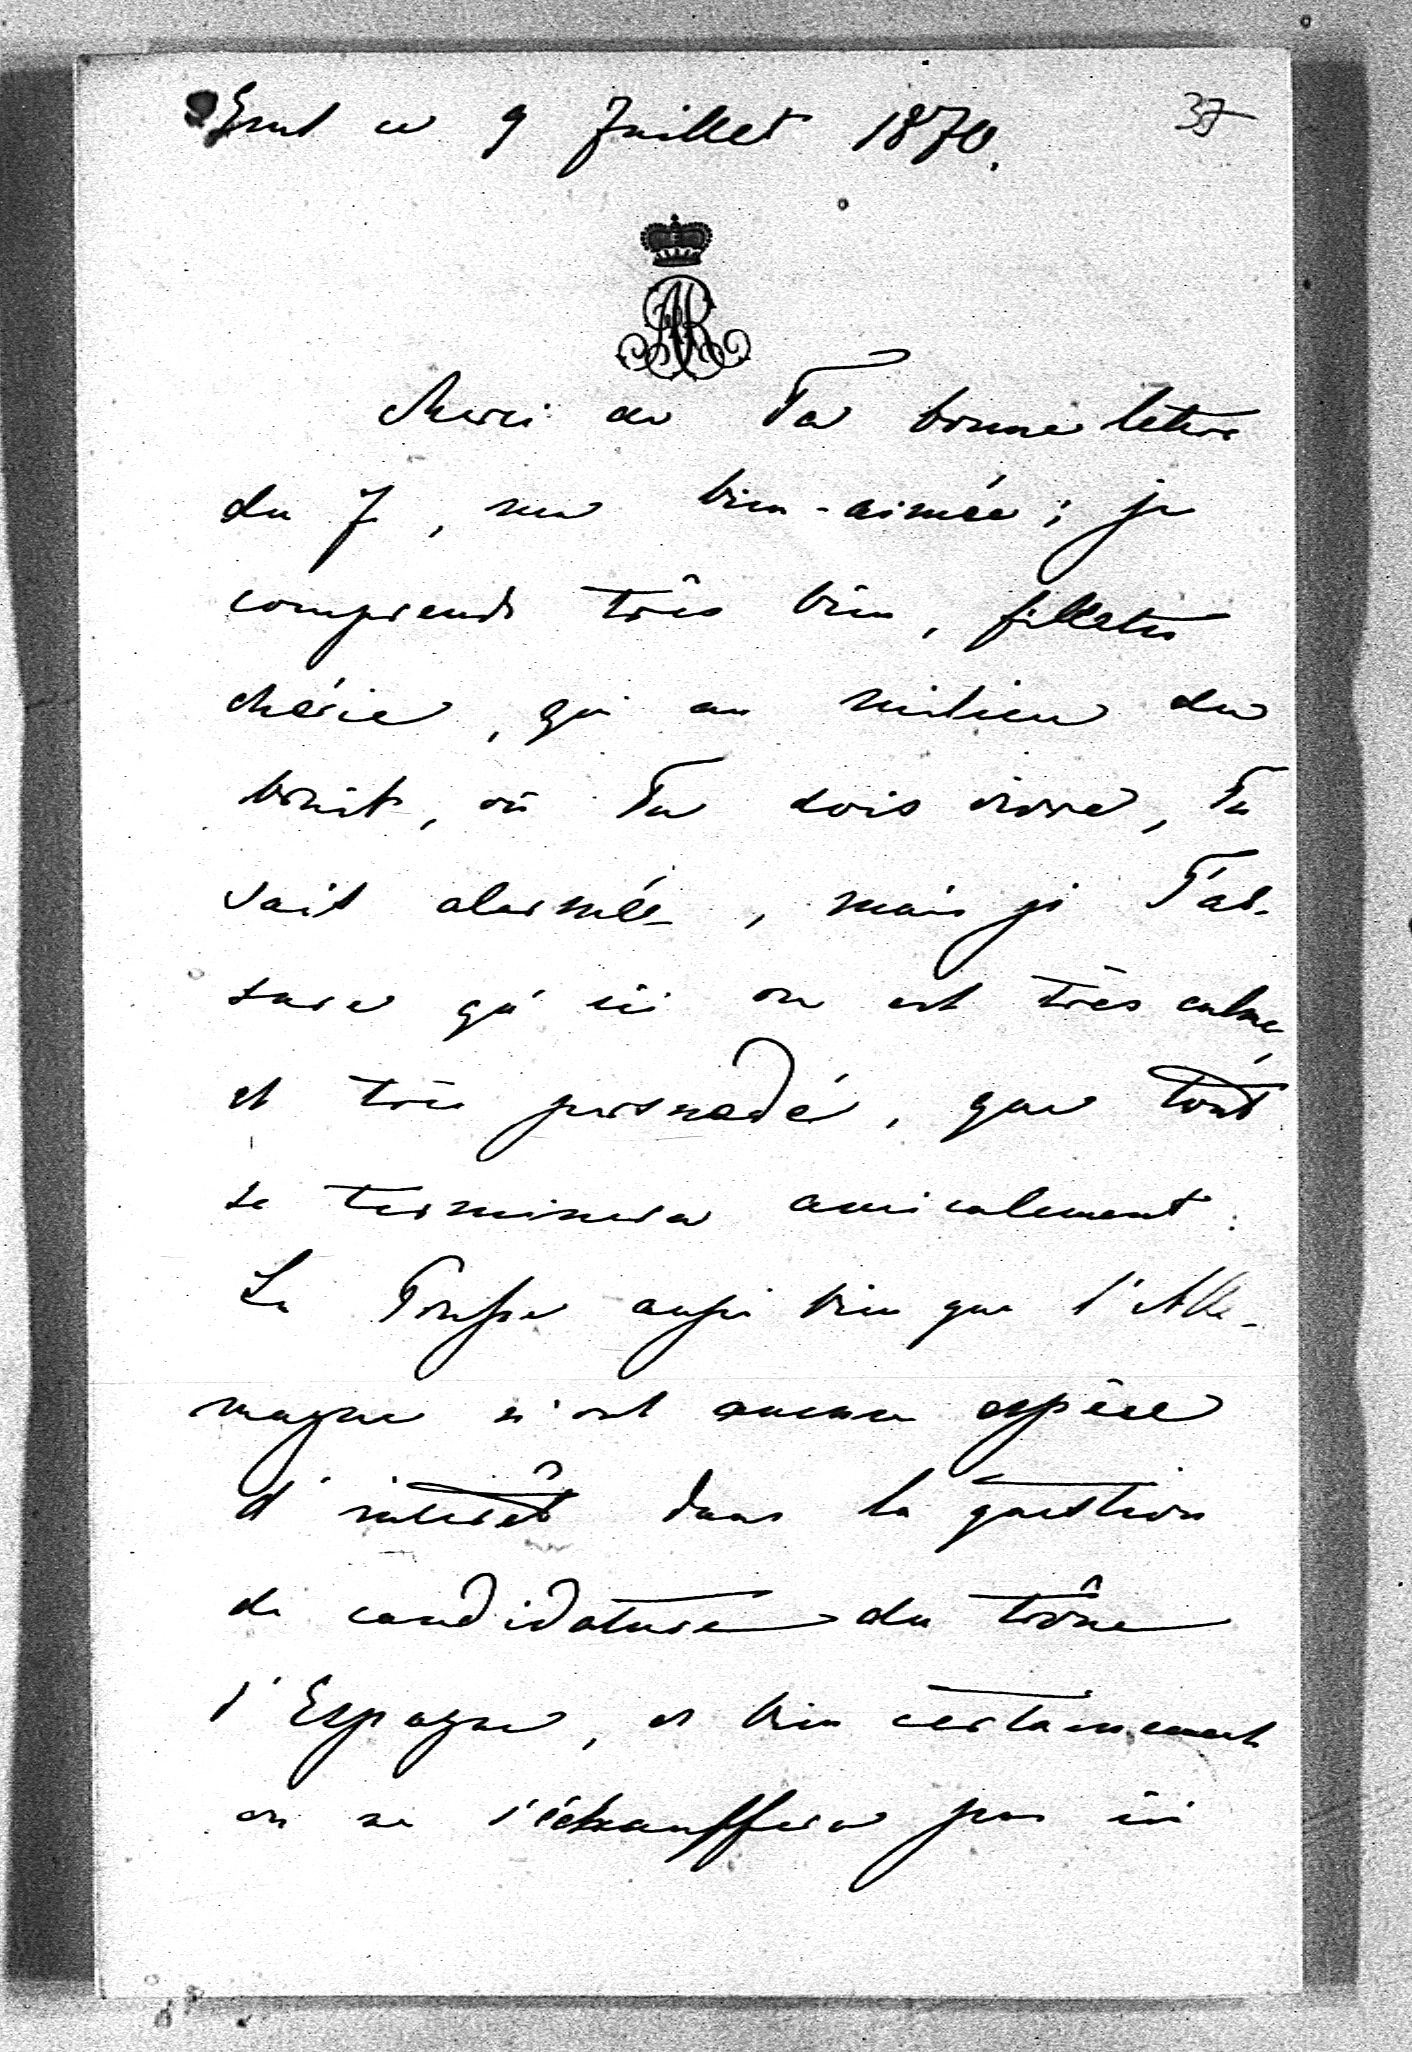 Ems ce 9 Juillet 1870.
37
AR
Merci de Ta bonne lettre
du 7, ma bien-aimée; je
comprends très bien, fillette
chérie, qu'au milieu du
bruit, où Tu dois vivre, Tu
sait alarmée, mais je T'as-
sure qu'ici on est très calme
et très persuadé, que tout
se terminera amicalement.
La Prusse aussi bien que l'Alle-
magne n'ont aucune espèce
d'interêt dans la question
de candidature du trône
d'Espagne, et bien certainement
on ne s'échauffera pas ici